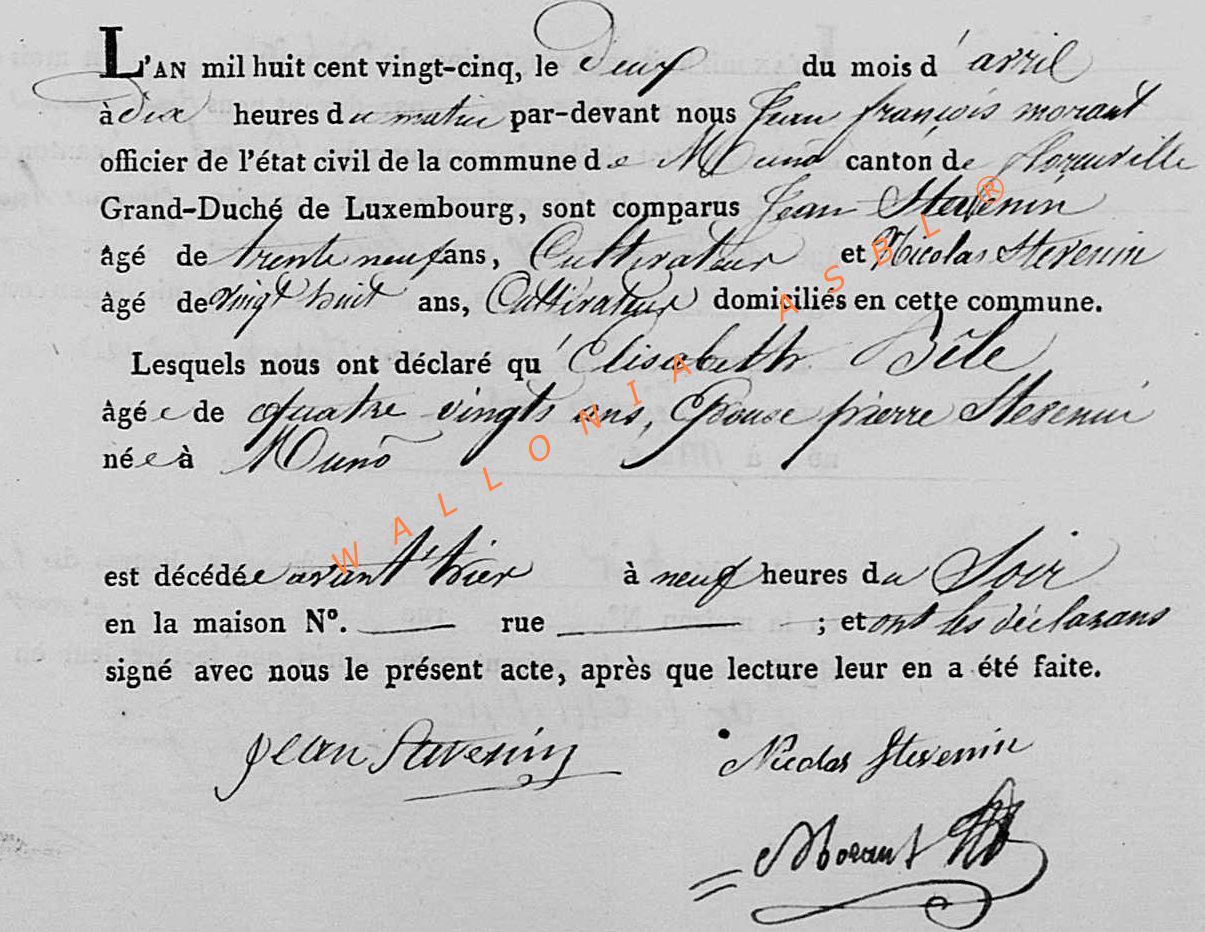 L'AN mil huit cent vingt-cinq, le deux du mois d'avril
à dix heures du matin par-devant nous Jean françois morant
officier de l'état civil de la commune de Muno canton de florenville
Grand-Duché de Luxembourg, sont comparus Jean Stevenin
âgé de trente neuf ans, Cultivateur et Nicolas Stevenin
âgé de vingt huit ans, Cultivateur domiciliés en cette commune.
Lesquels nous ont déclaré qu'Elisabeth Bêle
âgée de quatre vingts ans, Epouse pierre Stevenin
née à Muno
est décédée avant hier à neuf heures du Soir
en la maison N°. rue ; et ont les déclarans
signé avec nous le présent acte, après que lecture leur en a été faite.
Jean Stevenin Nicolas Stevenin
Morant
WALLONIA ASBL ®